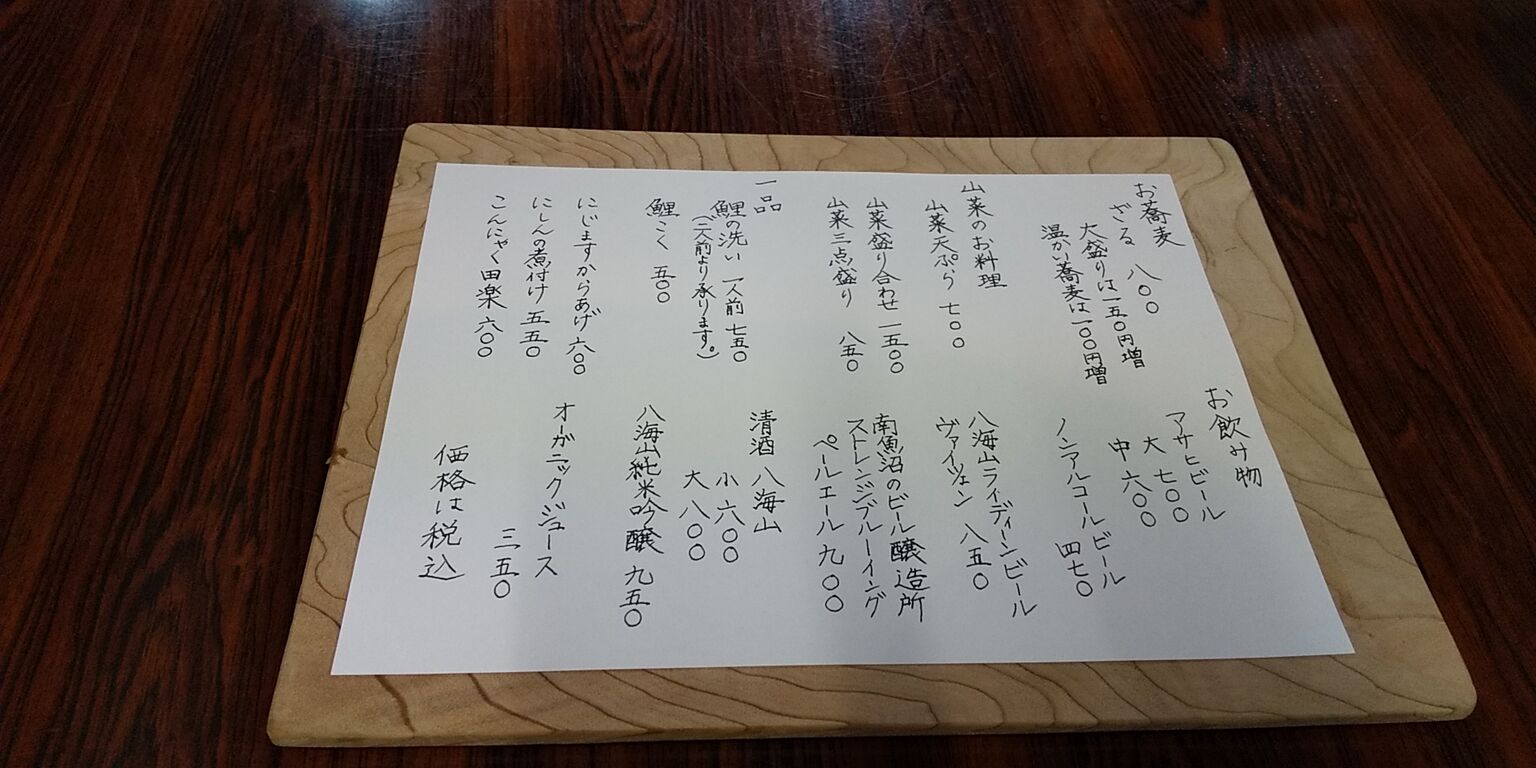 お蕎麦
ざる 八〇〇
大盛りは一五〇円増
温かい蕎麦は一〇〇円増
山菜のお料理
山菜天ぷら 七〇〇
山菜盛り合わせ 一五〇〇
山菜三点盛り 八五〇
一品
鯉の洗い 一人前 七五〇
(二人前より承ります。)
鯉こく 五〇〇
にじますからあげ 六〇〇
にしんの煮付け 五五〇
こんにゃく田楽 六〇〇
お飲み物
アサヒビール
大 七〇〇
中 六〇〇
ノンアルコールビール
四七〇
八海山ライディーンビール
ヴァイツェン 八五〇
南魚沼のビール醸造所
ストレンジブルーイング
ペールエール 九〇〇
清酒 八海山
小 六〇〇
大 八〇〇
八海山純米吟醸 九五〇
オーガニックジュース
三五〇
価格は税込